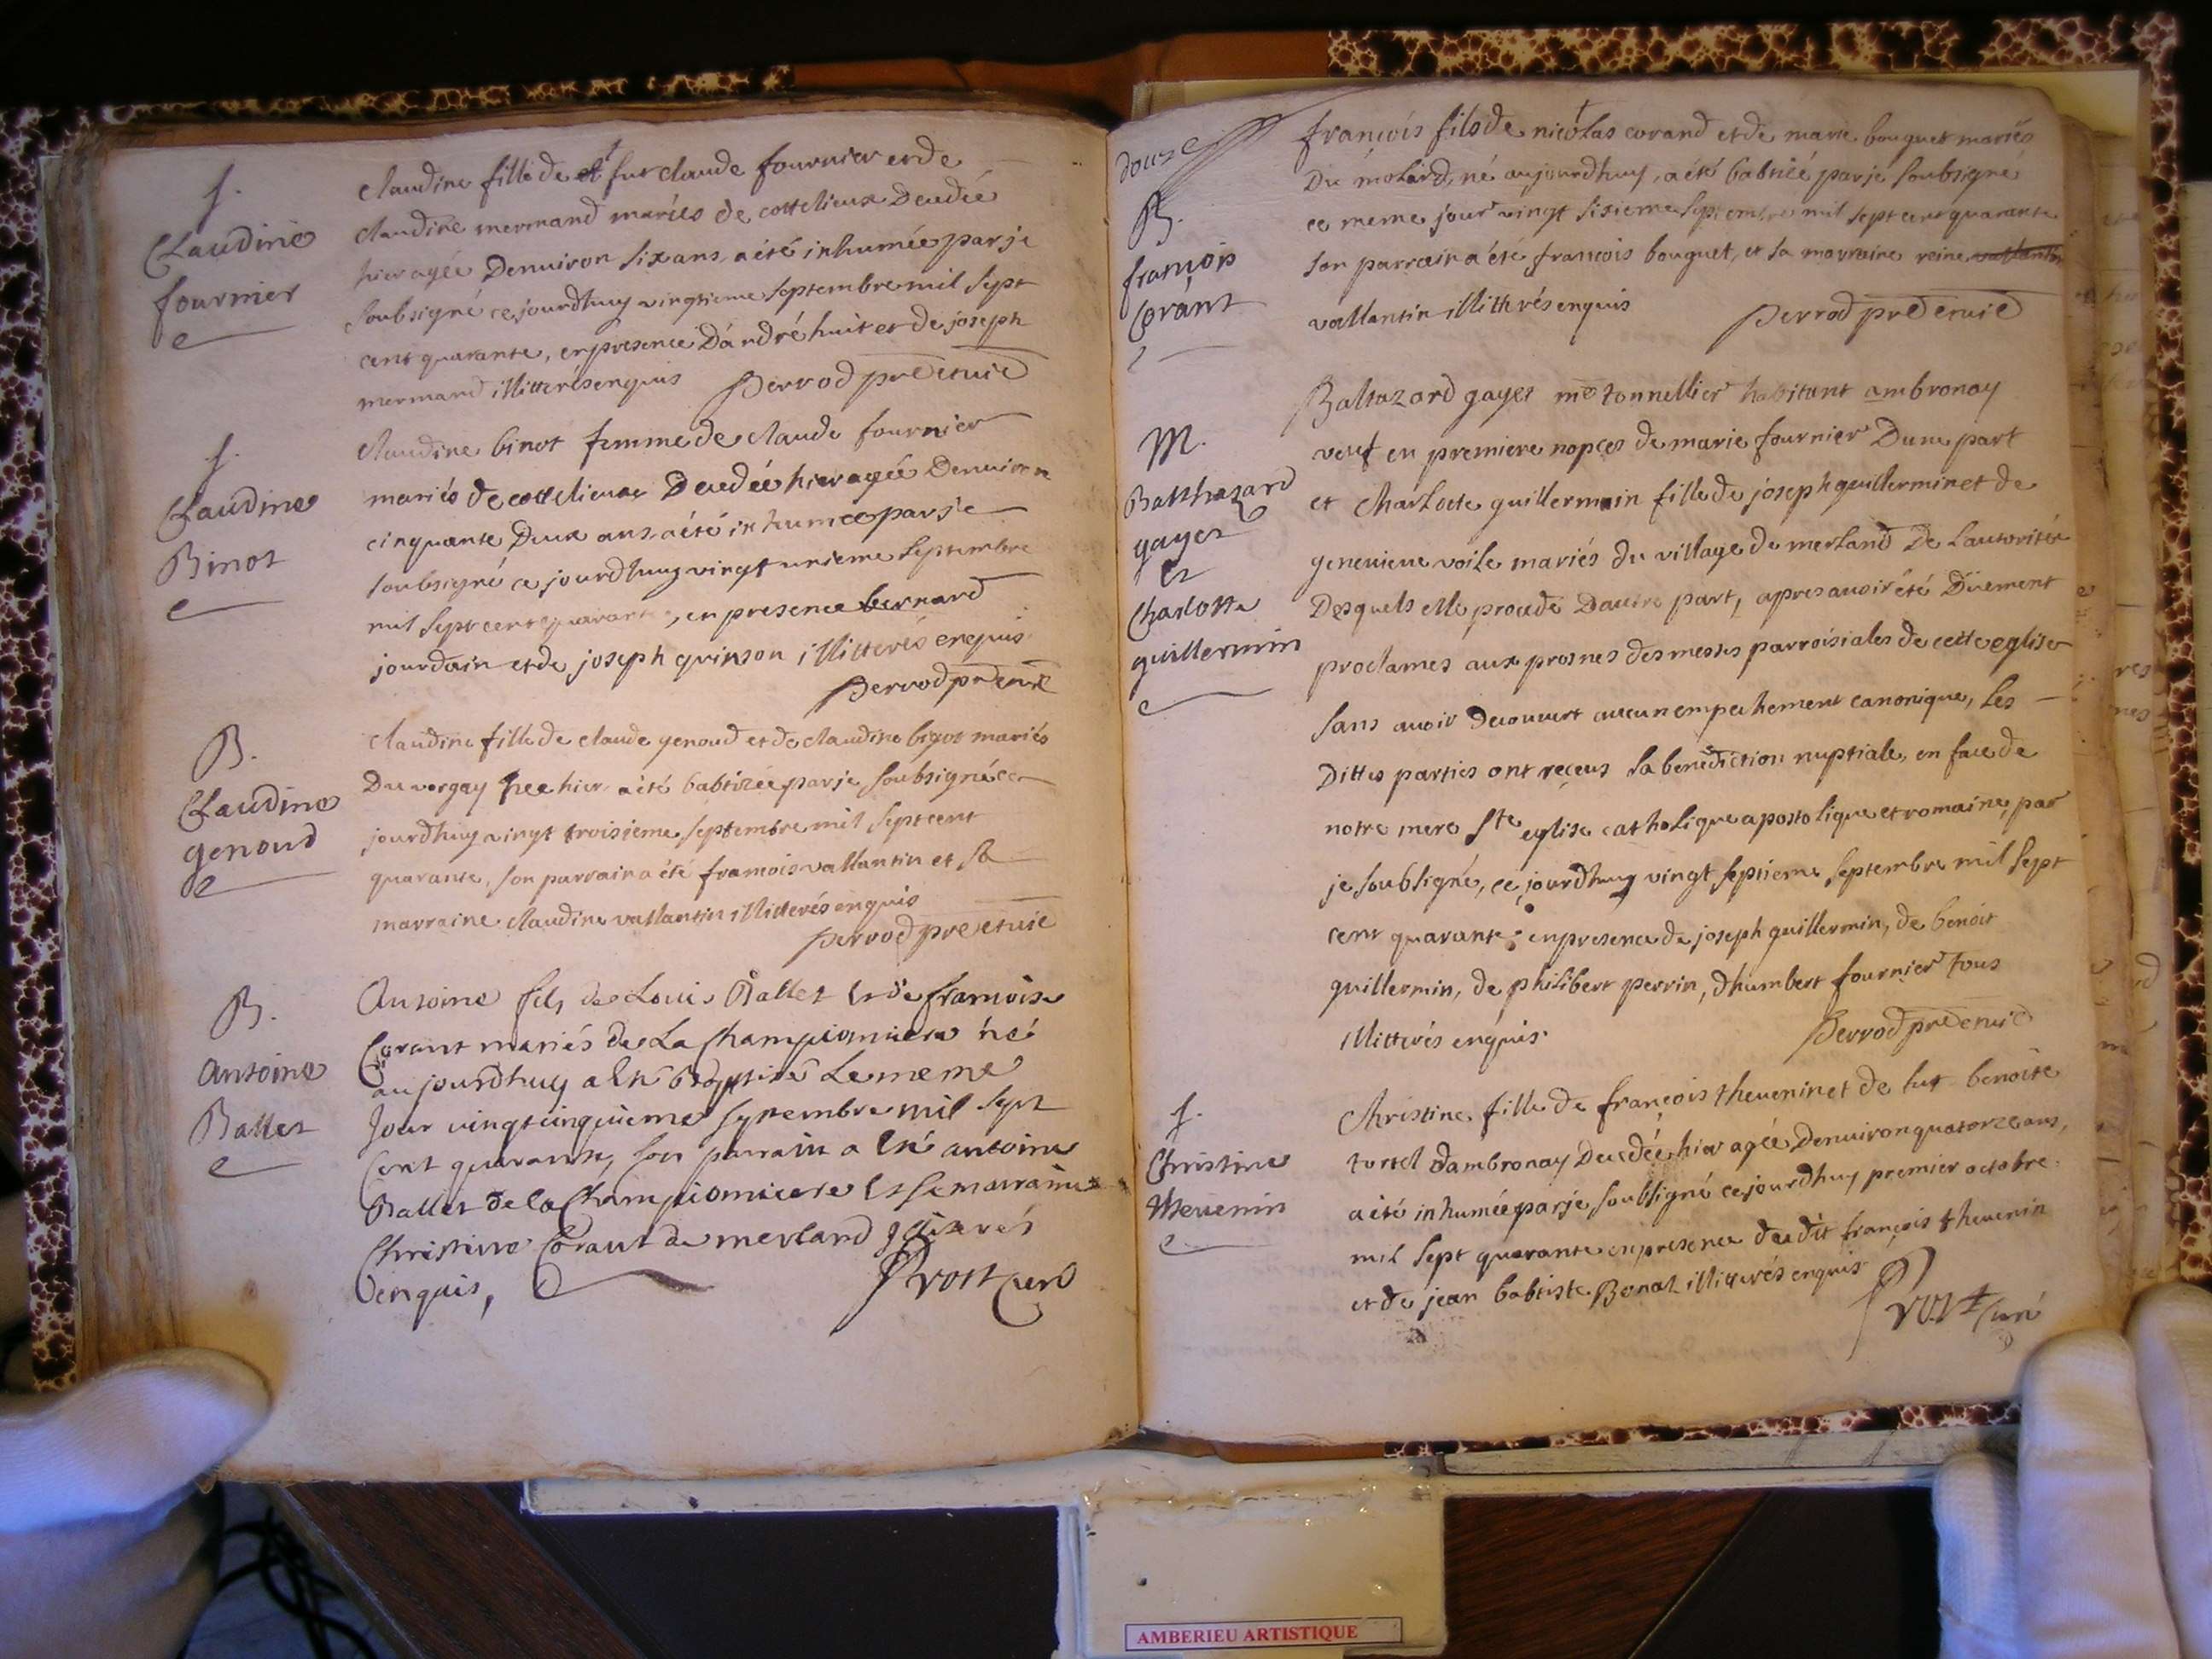 f.
Claudine
fournier
claudine fille de fut claude fournier et de
claudine mermand mariés de cottelieux Decedée
hier agée Denuiron six ans, a été inhumée par je
soubsigné ce jourdhuy vingtieme septembre mil sept
cent quarante, en presence D'andré huit et de joseph
mermand illitterés enquis Perrod pre et uic
f.
Claudine
Binot
claudine binot femme de claude fournier
mariés de cottelieux Decedée hier agée Denuiron
cinquante Deux ans a été inhumee par je
soubsigné ce jourdhuy vingt unieme septembre
mil sept cent quarante, en presence bernard
jourdain et de joseph quinson illitterés enquis
Perrod pre et uic
B.
Claudine
genoud
claudine fille de claude genoud et de claudine bigot mariés
Du vorgay née hier a été babtizée par je soubsigné ce
jourdhuy vingt troisieme septembre mil sept cent
quarante, son parrain a été francois vallantin et sa
marraine claudine vallantin illitterés enquis
perrod pre et uic
B.
Antoine
Ballet
Antoine fils de Louis Ballet et de francoise
Corant mariés de La Championniere né
aujourdhuy a été baptisé Le meme
Jour vingt cinquieme septembre mil sept
cent quarante, son parrain a été antoine
Ballet de la Championniere et sa marraine
Christine Corant de merland
enquis, Prost curé
douze
B.
françois
Corant
françois fils de nicolas corand et de marie bouguet mariés
Du molard, né aujourdhuy, a été babtizé par je soubsigné
ce meme jour vingt sisieme septembre mil sept cent quarante
son parrain a été francois bouguet, et sa marraine reine vallantin
vallantin illitterés enquis Perrod pre et uic
M.
Balthazard
gayet
et
Charlotte
guillermin
Baltazard gayet me tonnellier habitant ambronay
veuf en premiere nopces de marie fournier Dune part
et charlotte guillermin fille de joseph guillermin et de
geneuieue voile mariés du village de merland De Lautorité
Desquels elle procede Dautre part, apres auoir été Düement
proclames aux prosnes des messes parroisiales de cette eglise
sans auoir decouuert aucun empechement canonique, Les
Dittes parties ont reçeus La benediction nuptiale, en face de
notre mere ste eglise catholique apostolique et romaine, par
je soubsigné, ce jourdhuy vingt septieme septembre mil sept
cent quarante, en presence de joseph guillermin, de benoit
guillermin, de philibert perrin, dhumbert fournier tous
illitterés enquis Perrod pre et uic
f.
Christine
theuenin
Christine fille de françois theuenin et de fut benoite
tortel dambronay Decedée hier agée Denuiron quatorze ans,
a été inhumée par je soubsigné ce jourdhuy premier octobre
mil sept quarante en presence dudit françois theuenin
et de jean babtiste Bonat illitterés enquis
Prost curé
AMBERIEU ARTISTIQUE